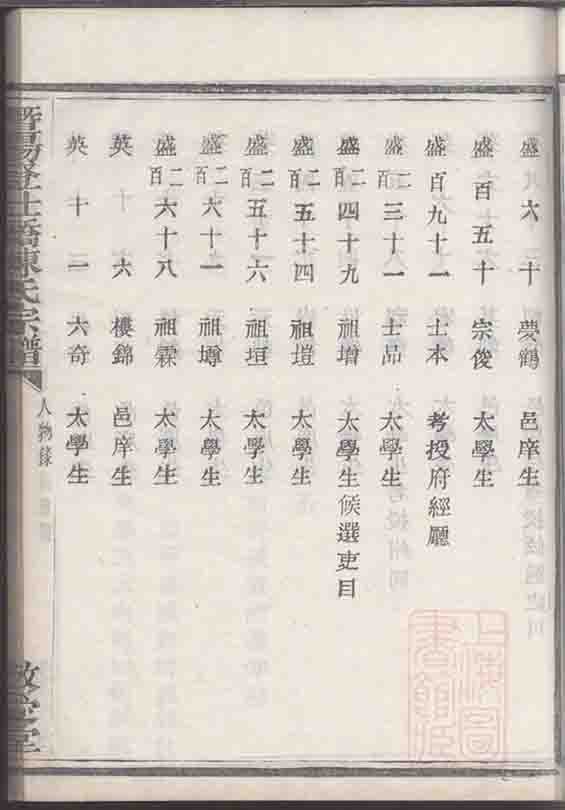 盛六十 夢鶴 邑庠生
盛百五十 宗俊 太學生
盛百九十一 士本 考授府經廳
盛二百三十一 士品 太學生
盛二百四十九 祖增 太學生候選吏目
盛二百五十四 祖塏 太學生
盛二百五十六 祖垣 太學生
盛二百六十一 祖墫 太學生
盛二百六十八 祖霖 太學生
英十六 樓錦 邑庠生
英十一 六奇 太學生
暨陽 橋陳氏宗譜 人物錄 堂
上海圖書館藏